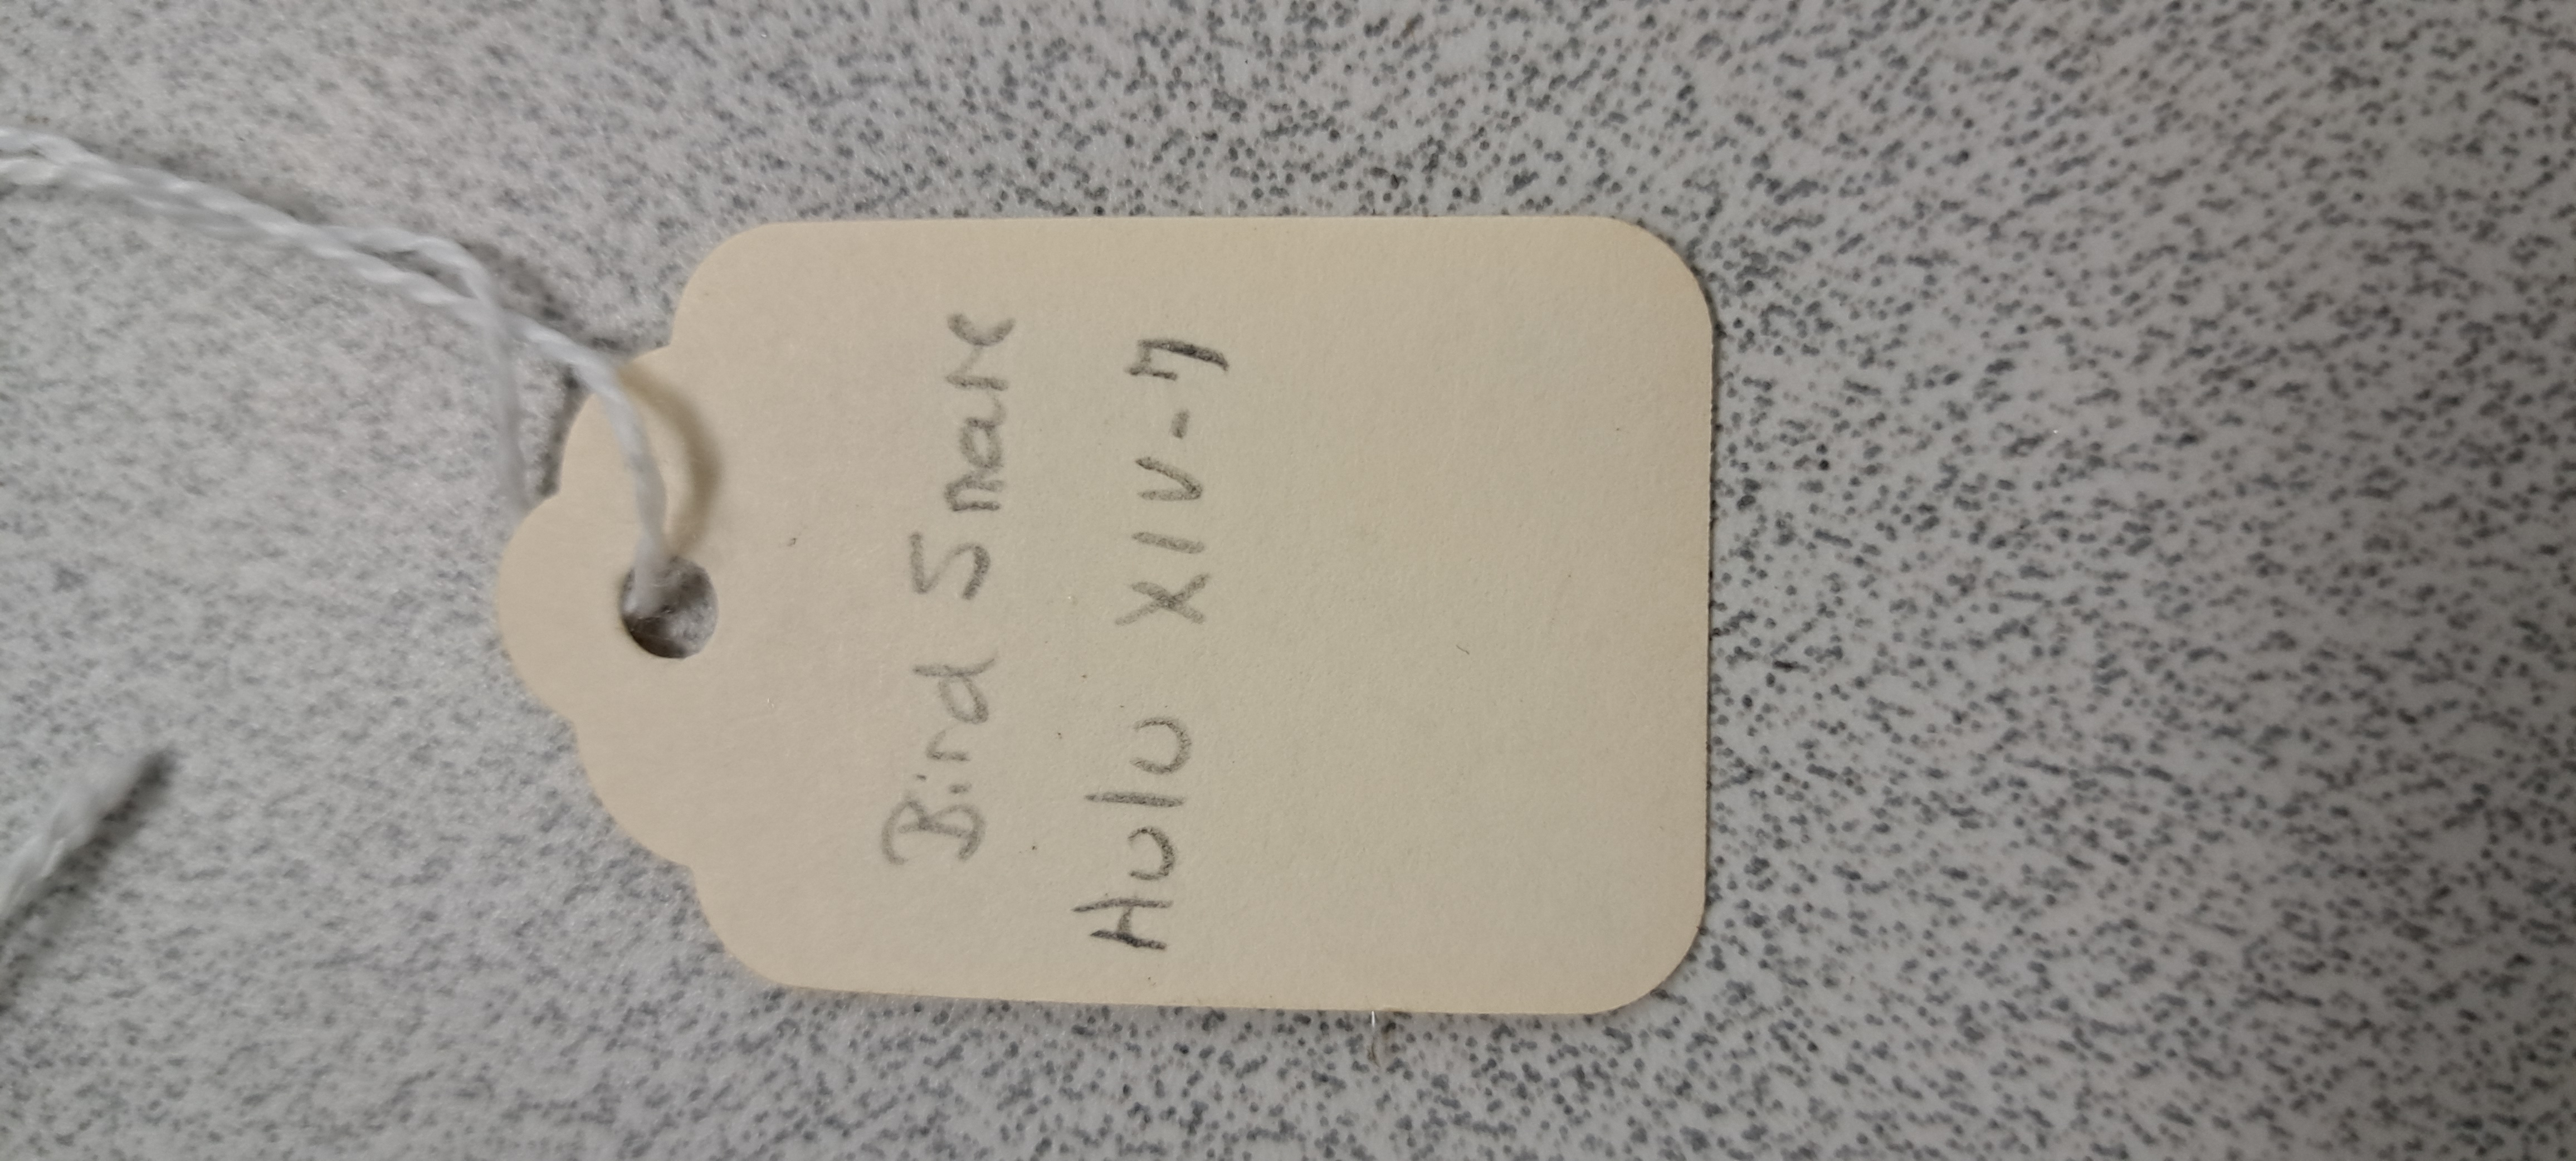 Bird Snare
Hulu XIV-7